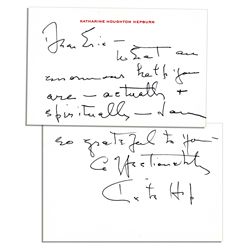 KATHARINE HOUGHTON HEPBURN
Dear Eric –
What an
enormous help you
are – actually &
spiritually – I am
so grateful to you –
Affectionately
Kate Hep